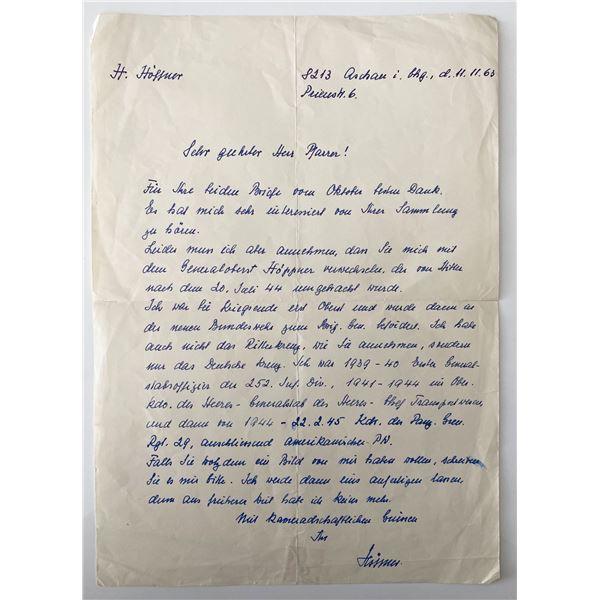 H. Höffner
8213 Aschau i. Chg., d. 11.11.63
Prienstr. 6.
Sehr geehrter Herr Pfarrer!
Für Ihre beiden Briefe vom Oktober besten Dank.
Es hat mich sehr interessiert von Ihrer Sammlung
zu hören.
Leider muss ich aber annehmen, dass Sie mich mit
dem Generaloberst Höppner verwechseln, der von Hitler
nach dem 20. Juli 44 umgebracht wurde.
Ich war bei Kriegsende erst Oberst und wurde dann in
der neuen Bundeswehr zum Brig. Gen. befördert. Ich habe
auch nicht das Ritterkreuz, wie Sie annehmen, sondern
nur das Deutsche Kreuz. Ich war 1939-40 Erster General-
stabsoffizier der 252. Inf. Div., 1941-1944 im Ober.
kdo. des Heeres - Generalstab des Heeres - Chef Transportwesen,
und dann von 1944 - 22.2.45 Kdr. des Panz. Gren.
Rgt. 29, anschliessend amerikanischer PW.
Falls Sie trotzdem ein Bild von mir haben wollen, schreiben
Sie es mir bitte. Ich werde dann eins anfertigen lassen,
denn aus früherer Zeit habe ich keins mehr.
Mit kameradschaftlichen Grüssen
Ihr
Höffner.